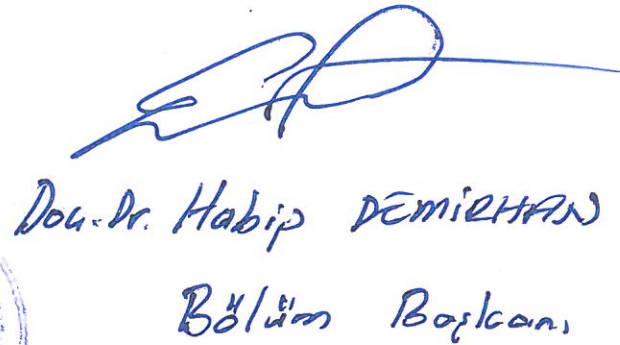 Doç.Dr. Habip DEMİRHAN
Bölüm Başkanı